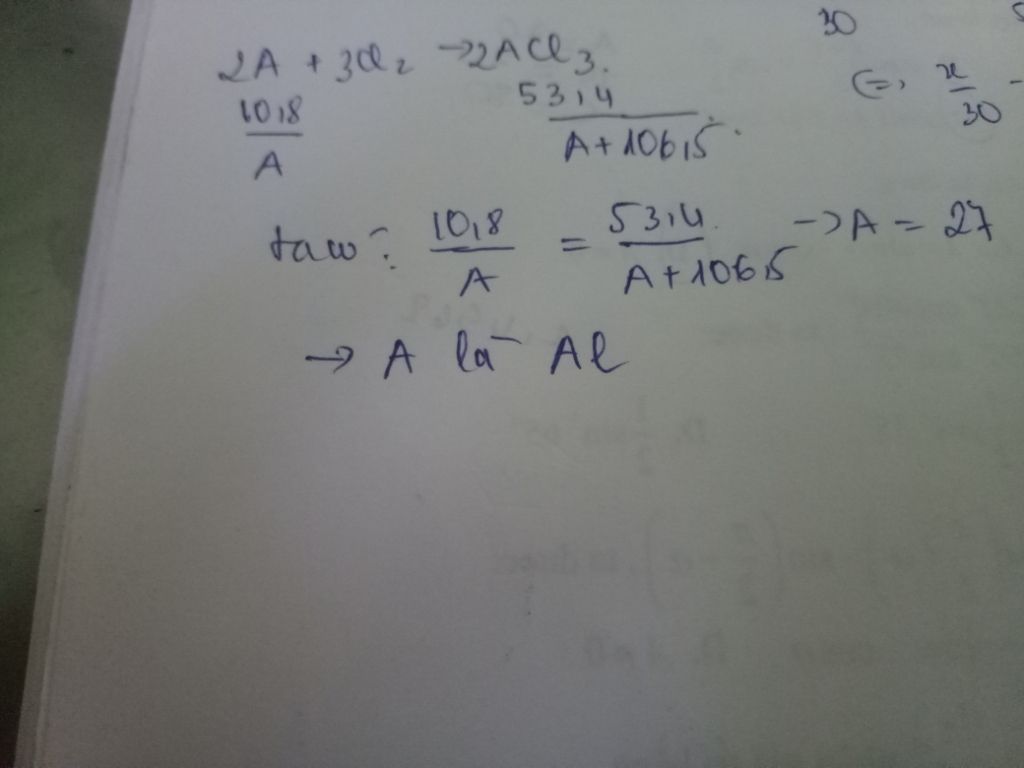 30
2A + 3Cl₂ → 2ACl₃.
(=, x/30 -
10,8/A 53,4/A+106,5
taco: 10,8/A = 53,4/A+106,5 → A = 27
→ A là Al